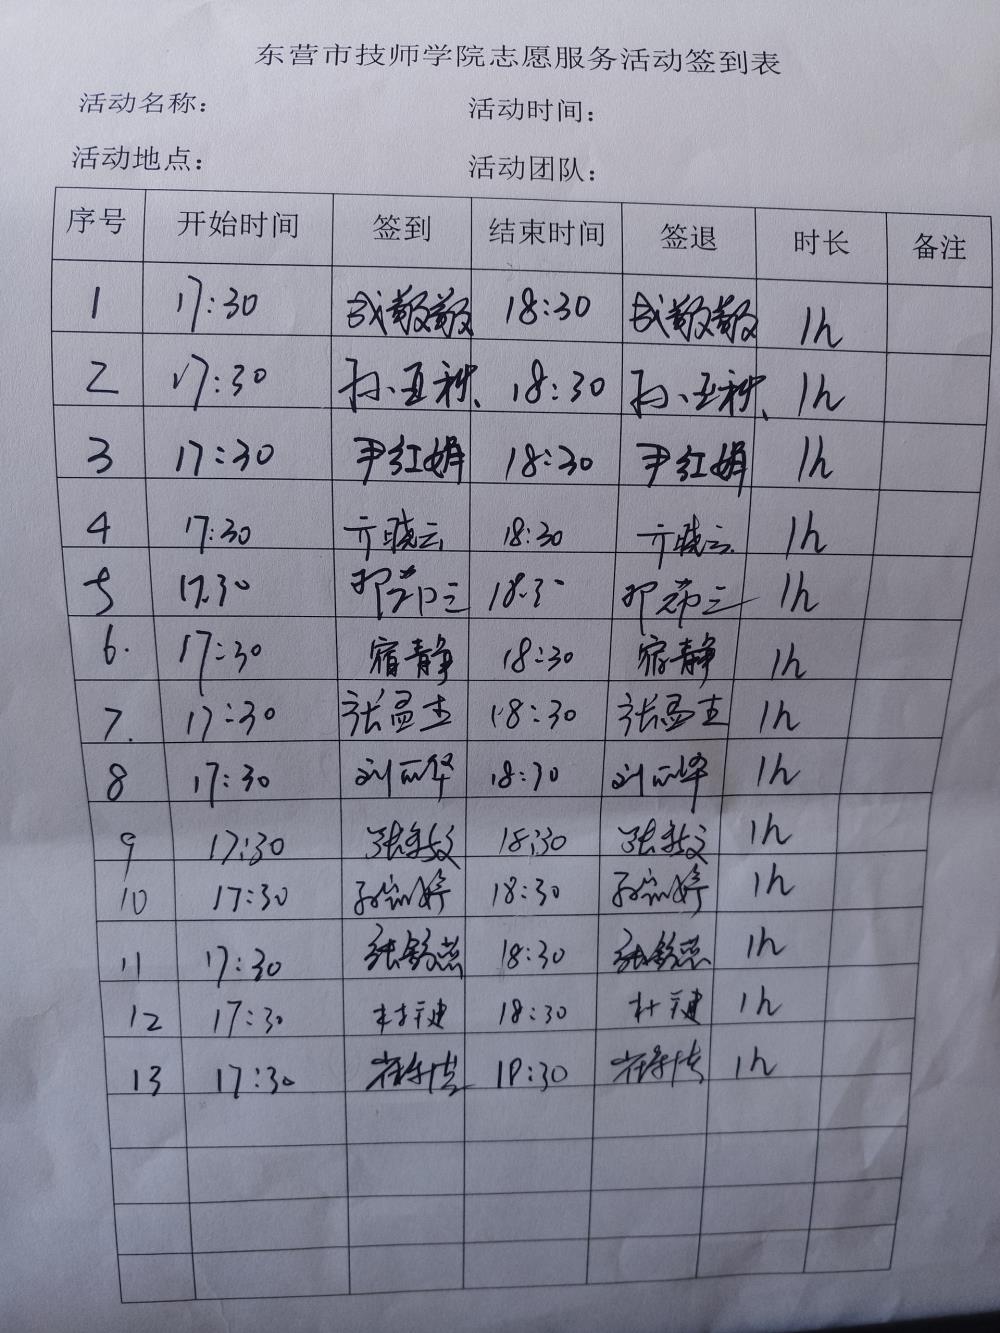 东营市技师学院志愿服务活动签到表
活动名称： 活动时间：
活动地点： 活动团队：
序号 开始时间 签到 结束时间 签退 时长 备注
1 17:30 成敬敬 18:30 成敬敬 1h
2 17:30 孙玉秧 18:30 孙玉秧 1h
3 17:30 尹红娟 18:30 尹红娟 1h
4 17:30 亓晓云 18:30 亓晓云 1h
5 17:30 18:30 1h
6. 17:30 宿静 18:30 宿静 1h
7. 17:30 张孟杰 18:30 张孟杰 1h
8 17:30 刘丽华 18:30 刘丽华 1h
9 17:30 18:30 1h
10 17:30 18:30 1h
11 17:30 18:30 1h
12 17:30 18:30 1h
13 17:30 18:30 1h